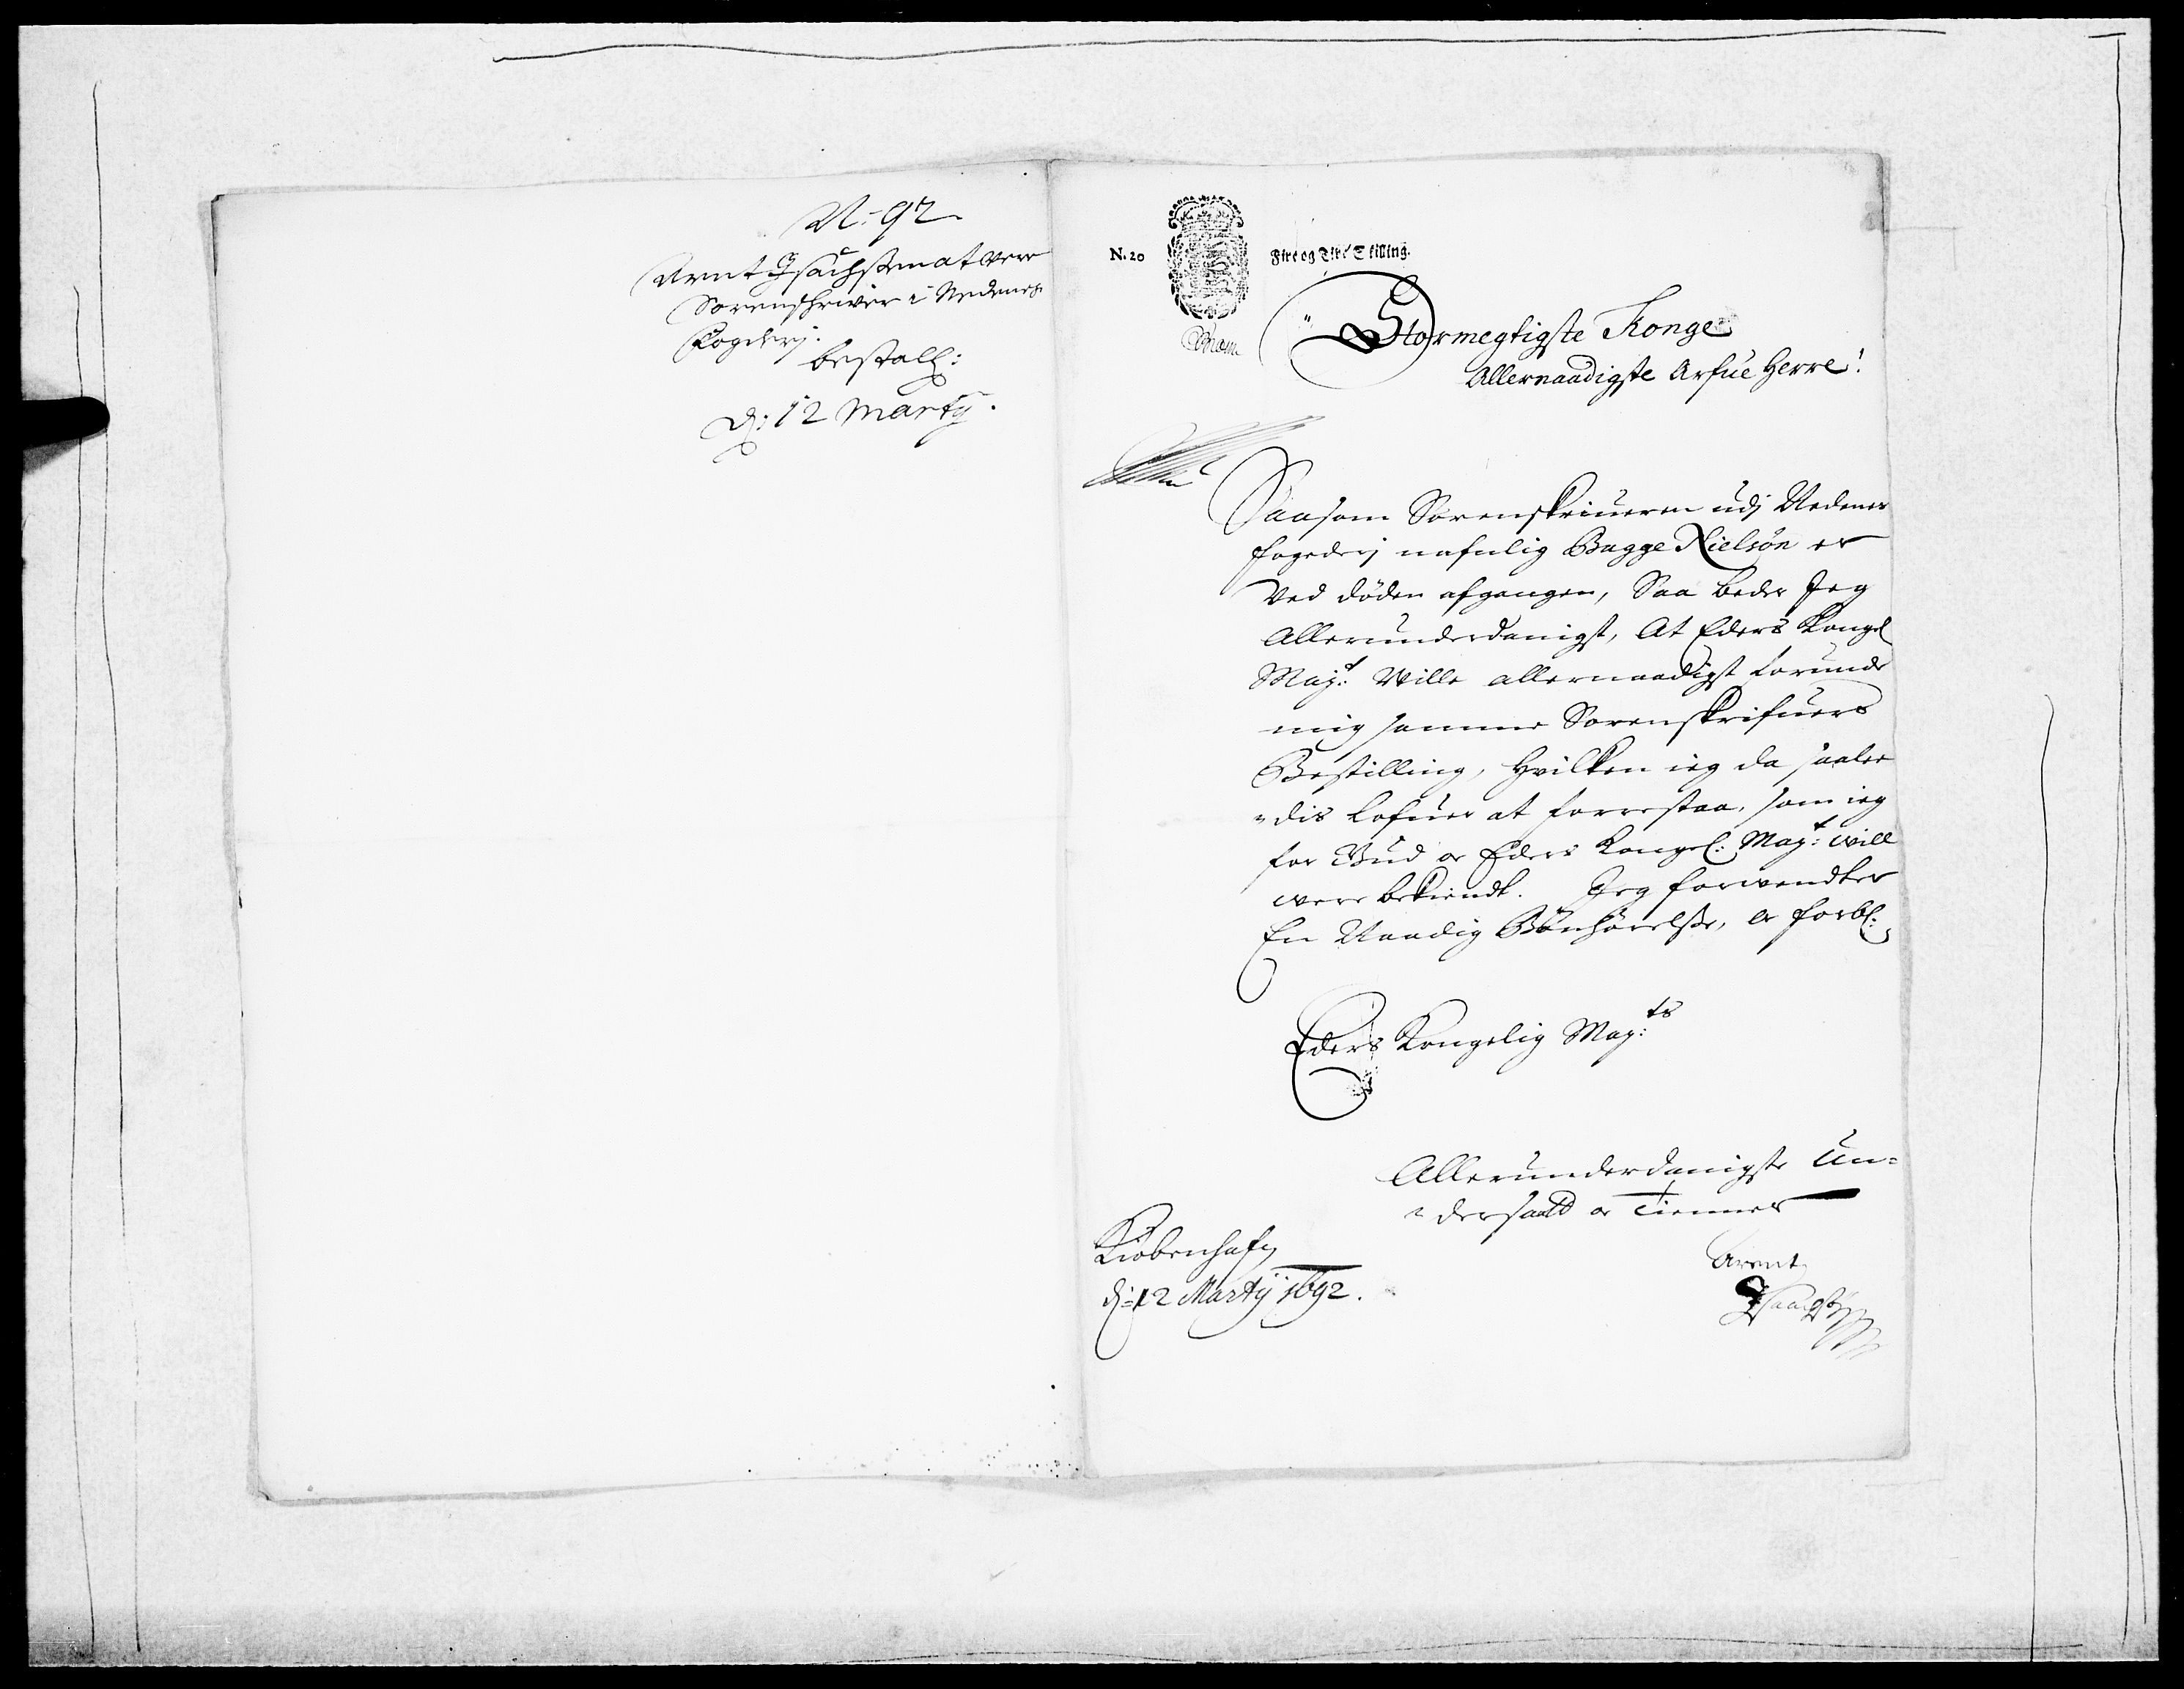 N: 92
Arent Isachsen at være
Sorenschriver i Nedenes
Fogderj.
bestalt:
d: 12 Martij.
N. 20
Fire og Tive Skilling.
Stormegtigste Konge
Allernaadigste Arfue Herre!
Saasom Sorenskriueren udj Nedenes
fogderj nafnlig Bagge Nielsøn er
Ved døden afgangen, Saa beder Jeg
Allerunderdanigst, At Eders Kongel
Majt: Wille allernaadigst forunde
mig samme Sorenskrifuers
Bestilling, Hvilken ieg da saale
-dis lofuer at forrestaa, som ieg
for Gud oc Eders Kongel: Mayt: will
were bekiendt. Jeg forwendter
En Naadig Bønhørelsse, oc forbl:
Eders Kongelig May:ts
Allerunderdanigste Un-
-dersaatt oc Tienner
Kiøbenhafn
d: 12 Martij 1692.
Arent